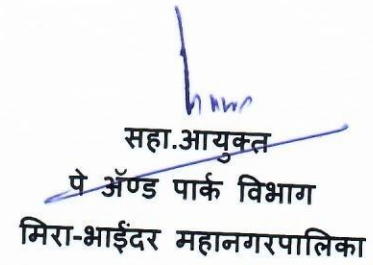 सहा.आयुक्त
पे ॲण्ड पार्क विभाग
मिरा-भाईंदर महानगरपालिका